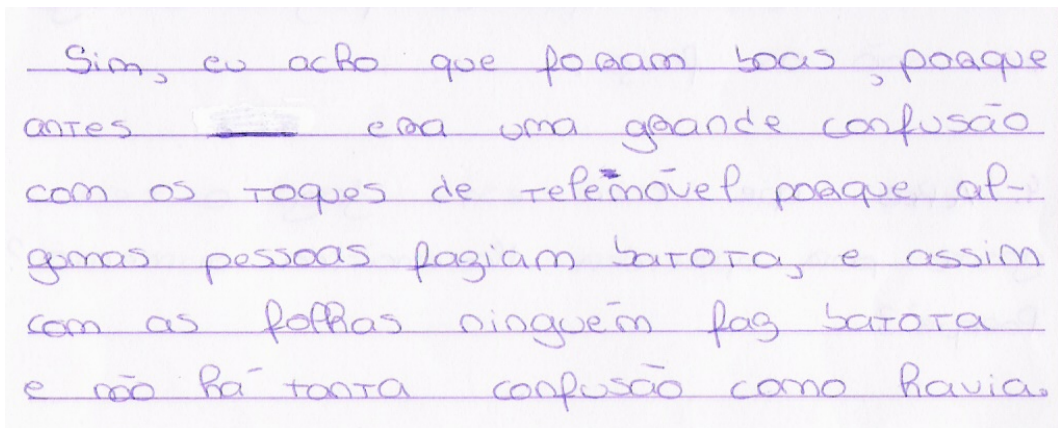 Sim, eu acho que foram boas, porque
antes era uma grande confusão
com os toques de telemóvel porque al-
gumas pessoas faziam batota, e assim
com as folhas ninguém faz batota
e não há tanta confusão como havia.